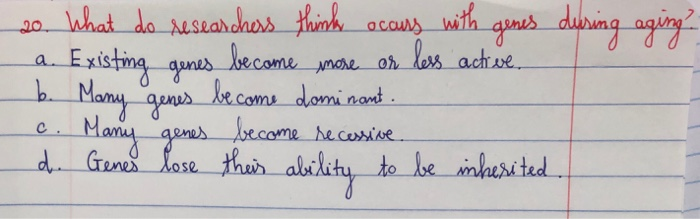 20. What do researchers think occurs with genes during aging?
a. Existing genes become more or less active.
b. Many genes become dominant.
c. Many genes become recessive.
d. Genes lose their ability to be inherited.